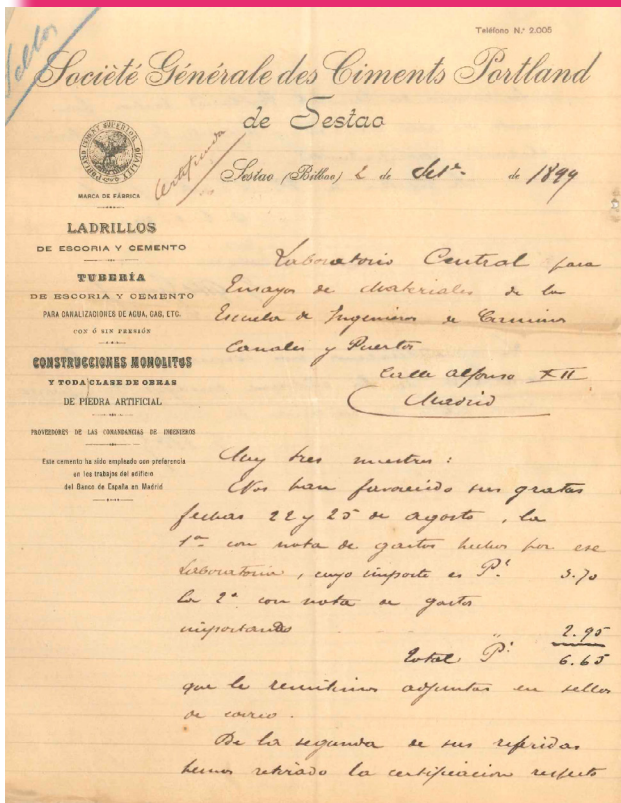 Teléfono N.º 2.005
Sellos
Societè Générale des Ciments Portland
de Sestao
Certificada
Sestao (Bilbao) 2 de Set.e de 1899
MARCA DE FÁBRICA
LADRILLOS
DE ESCORIA Y CEMENTO
TUBERÍA
DE ESCORIA Y CEMENTO
PARA CANALIZACIONES DE AGUA, GAS, ETC.
CON Ó SIN PRESIÓN
CONSTRUCCIONES MONOLITOS
Y TODA CLASE DE OBRAS
DE PIEDRA ARTIFICIAL
PROVEEDORES DE LAS COMANDANCIAS DE INGENIEROS
Este cemento ha sido empleado con preferencia
en los trabajos del edificio
del Banco de España en Madrid
Laboratorio Central para
Ensayos de Materiales de la
Escuela de Ingenieros de Caminos
Canales y Puertos
Calle Alfonso XII
Madrid
Muy tres nuestros:
Nos han favorecido sus gratas
fechas 22 y 25 de agosto, la
1ª con nota de gastos hechos por ese
Laboratorio, cuyo importe es P.s 3.70
la 2ª con nota de gastos
importando " 2.95
Total P.s 6.65
que le remitimos adjuntas en sellos
de correo.
De la segunda de sus referidas
hemos retirado la certificacion respecto